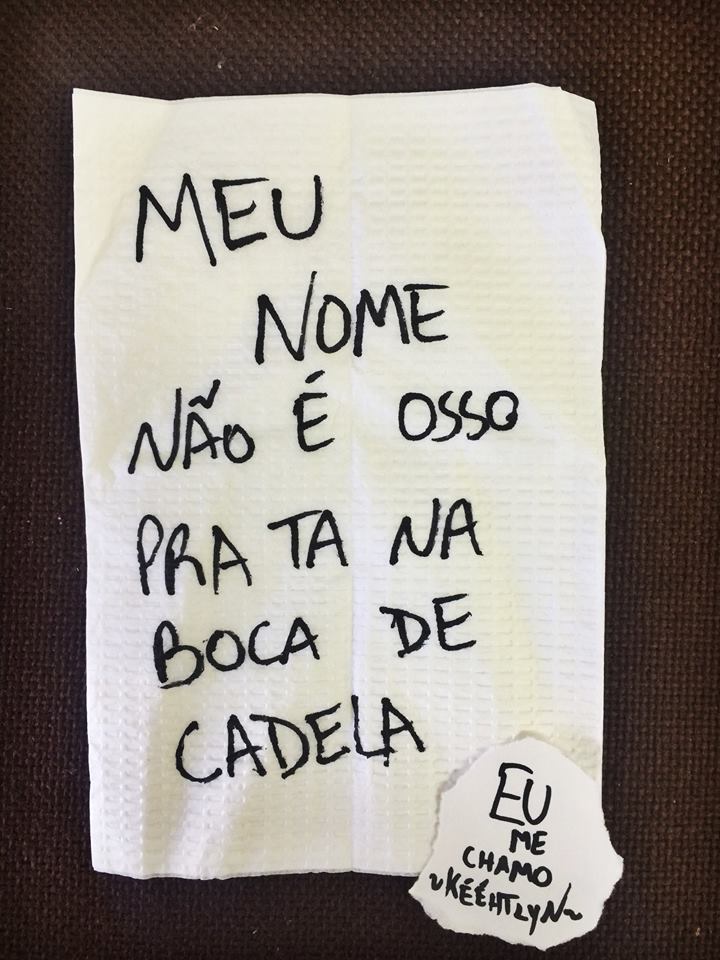 MEU
NOME
NÃO É OSSO
PRA TA NA
BOCA DE
CADELA
EU
ME
CHAMO
~KÉÉHTLYN~